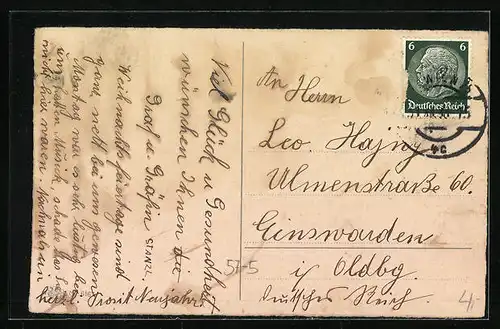 Viel Glück u. Gesundheit
wünschen Ihnen die
Graf u. Gräfin
STANZL
Weihnachtsfeiertage sind
ganz nett bei uns gewesen
Montag war es sehr lustig bei
uns hatten Musick, schade das Sie
nicht hier waren. Nochmals ein
herzl. Prosit Neujahr
6 6
Deutsches Reich
An Herrn
Leo. Hajny
Ulmenstraße 60.
Einswarden
i/ Oldbg.
Deutsches Reich.
525
4,-